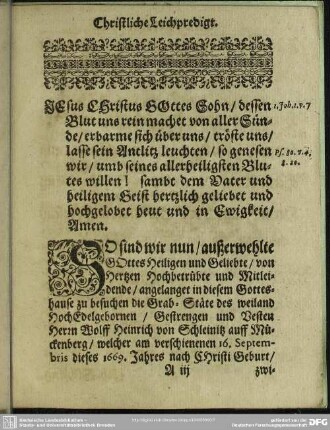 Christliche Leichpredigt.
JEsus CHristus GOttes Sohn / dessen 1. Joh. 1. v. 7
Blut uns rein machet von aller Sün-
de / erbarme sich über uns / tröste uns /
lasse sein Antlitz leuchten / so genesen Ps. 80. v. 4.
wir / umb seines allerheiligsten Blu- 8. 20.
tes willen! sambt dem Vater und
heiligem Geist hertzlich geliebet und
hochgelobet heut und in Ewigkeit /
Amen.
SO sind wir nun / außerwehlte
GOttes Heiligen und Geliebte / von
Hertzen Hochbetrübte und Mitlei-
dende / angelanget in diesem Gottes-
hause zu besuchen die Grab-Städte des weiland
HochEdelgebornen / Gestrengen und Vesten
Herrn Wolff Heinrich von Schleinitz auff Mü-
ckenberg / welcher am verschienenen 16. Septem-
bris dieses 1669. Jahres nach CHristi Geburt /
A iij zwi-